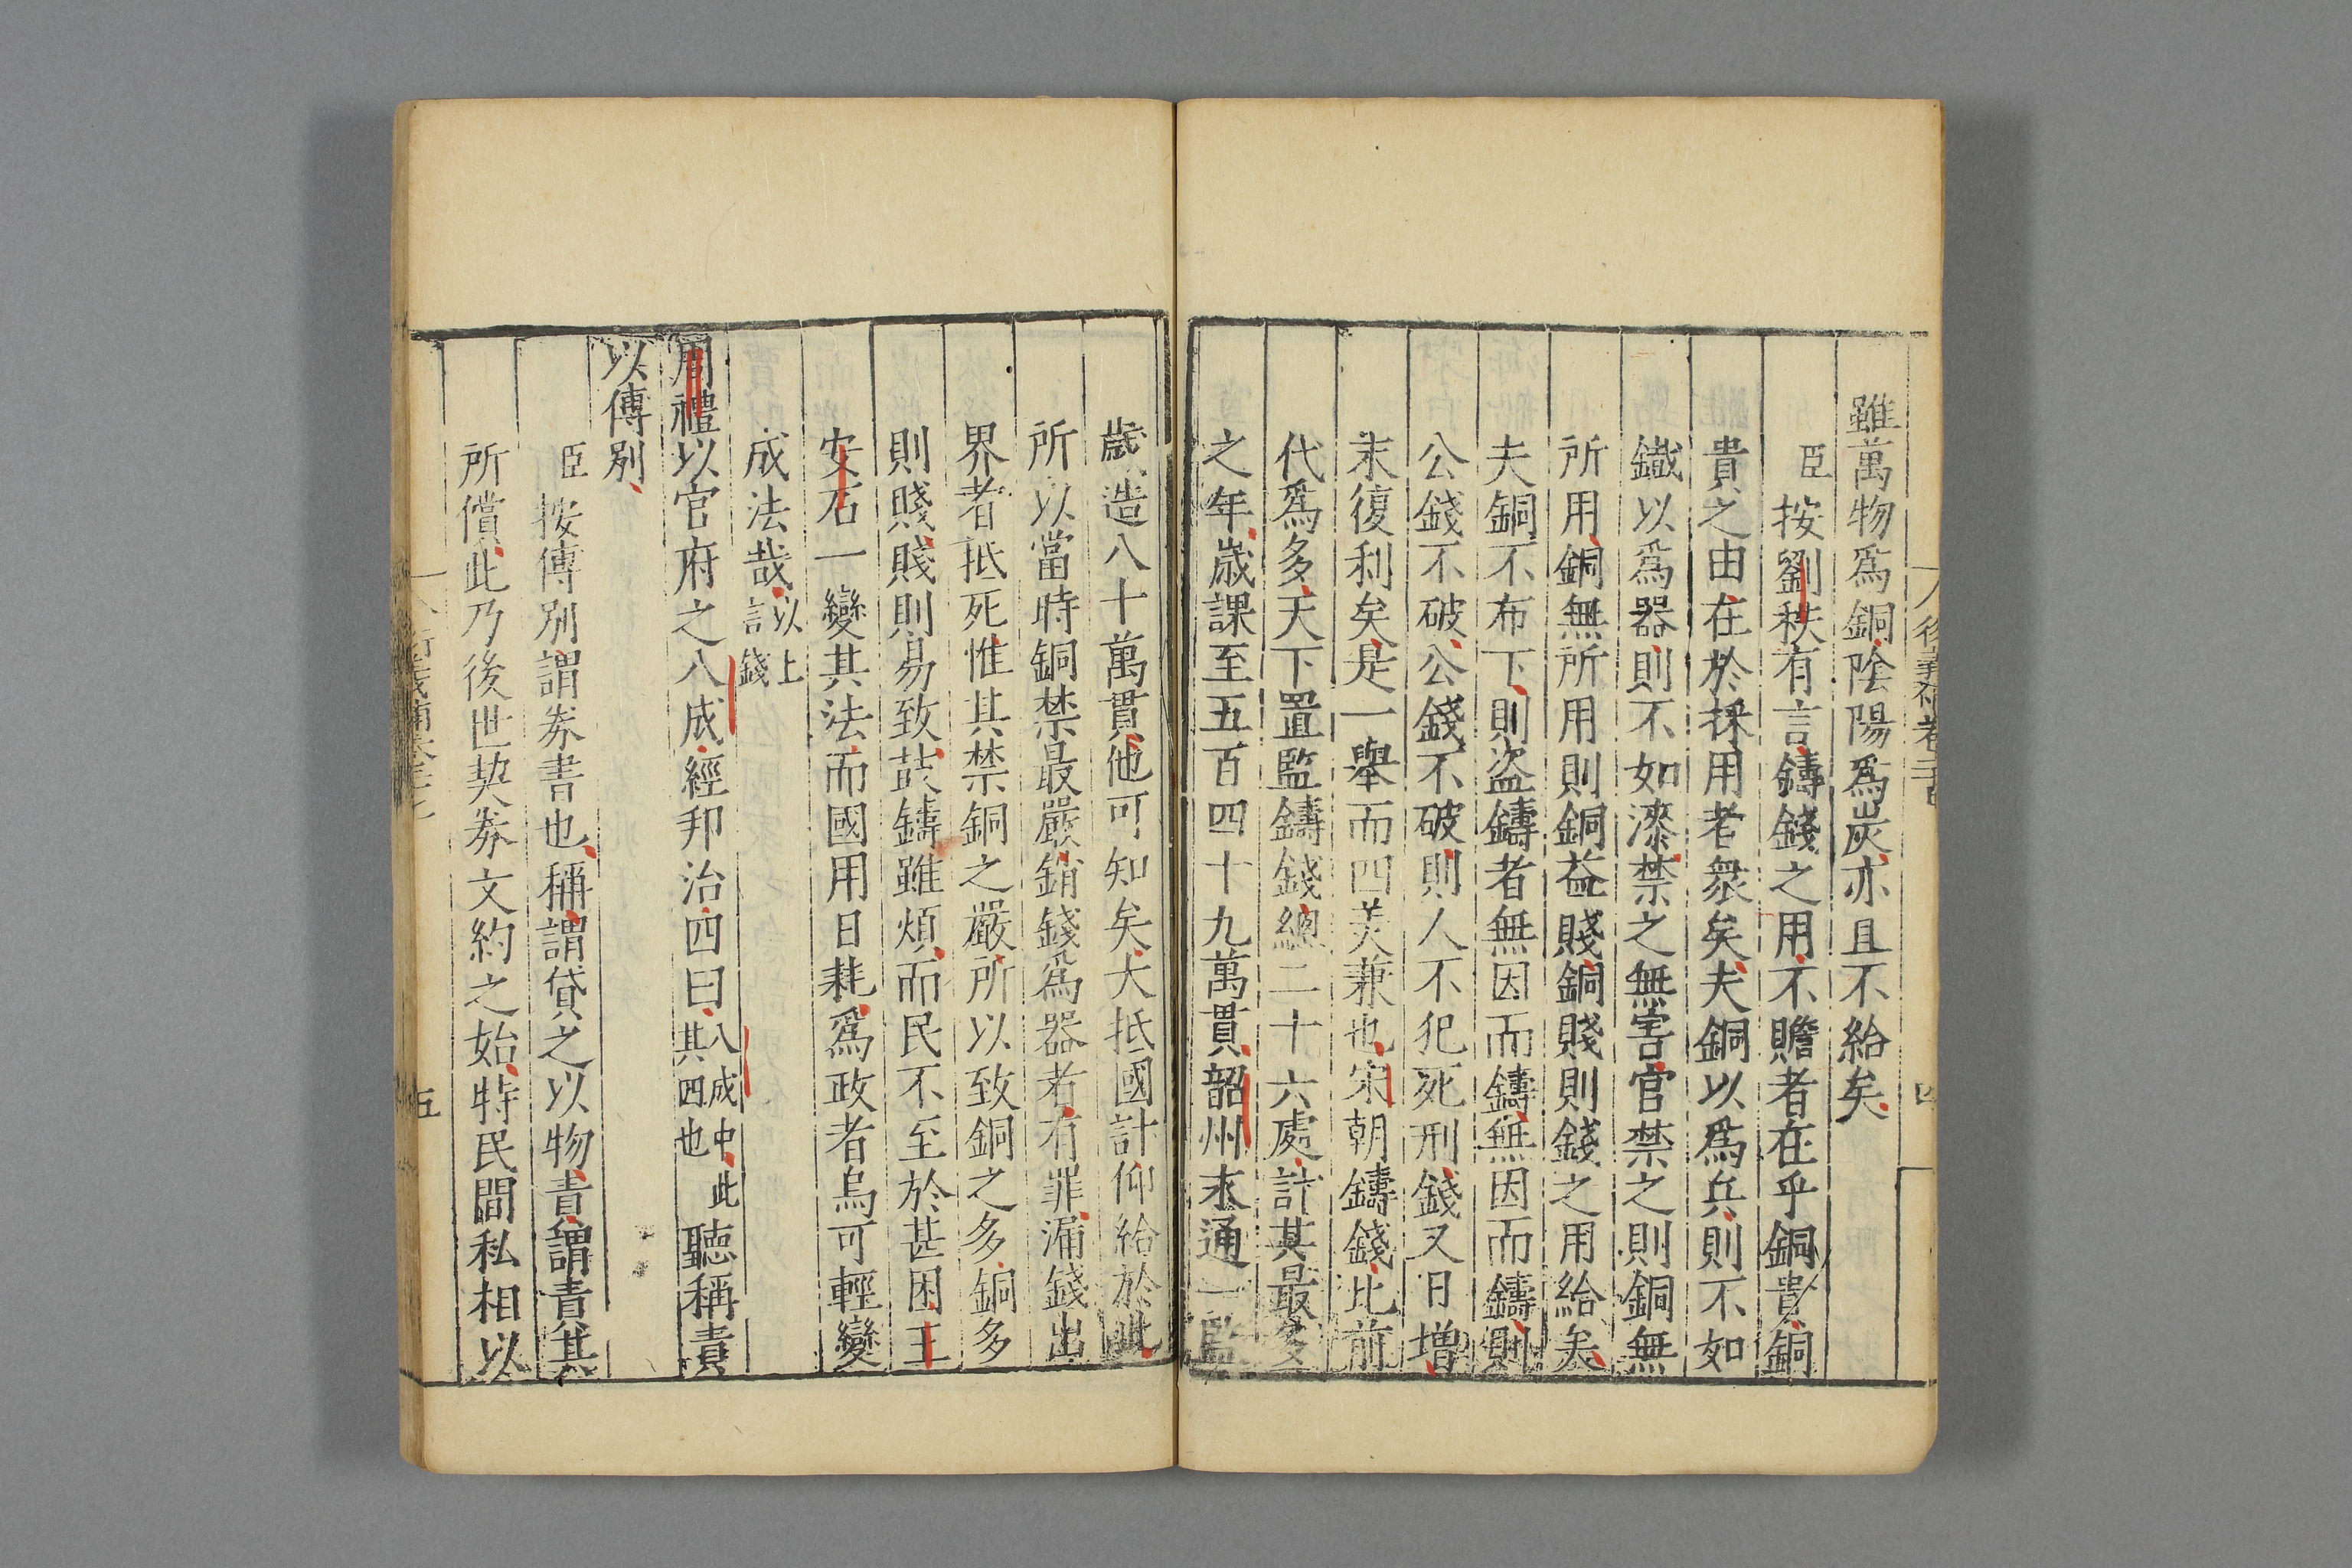 雖萬物爲銅陰陽爲炭亦且不給矣
臣按劉秩有言鑄錢之用不贍者在乎銅貴銅
貴之由在於採用者衆矣夫銅以爲兵則不如
鐵以爲器則不如漆禁之無害官禁之則銅無
所用銅無所用則銅益賤銅賤則錢之用給矣
夫銅不布下則盜鑄者無因而鑄無因而鑄則
公錢不破公錢不破則人不犯死刑錢又日增
末復利矣是一舉而四美兼也宋朝鑄錢比前
代爲多天下置監鑄錢總二十六處計其最多
之年歲課至五百四十九萬貫韶州永通一監
歲造八十萬貫他可知矣大抵國計仰給於此
所以當時銅禁最嚴銷錢爲器者有罪漏錢出
界者抵死惟其禁銅之嚴所以致銅之多銅多
則賤賤則易致故鑄雖煩而民不至於甚困王
安石一變其法而國用日耗爲政者烏可輕變
成法哉以上言錢
周禮以官府之八成經邦治四曰八成中此其四也聽稱責
以傅別
臣按傅別謂券書也稱謂貸之以物責謂責其
所償此乃後世契券文約之始特民間私相以
五